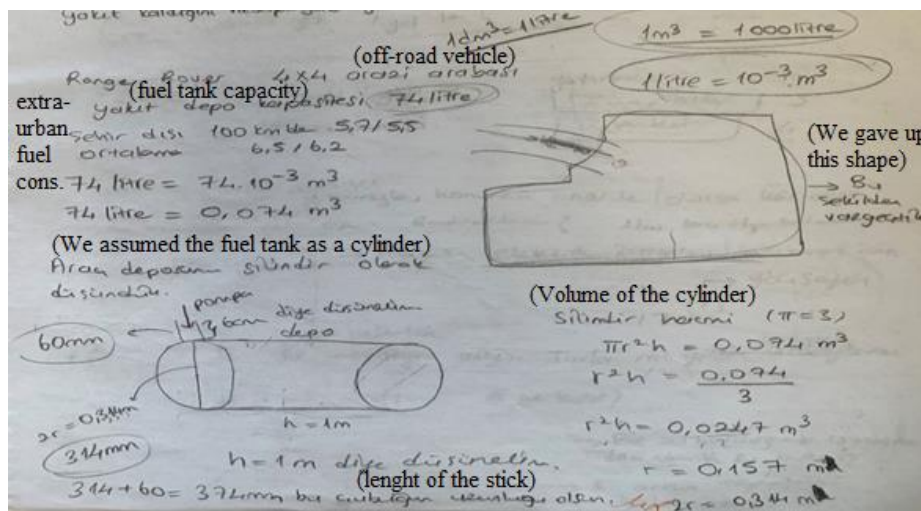 yakıt kaldığını
1dm³ = 1 litre
1m³ = 1000 litre
1 litre = 10⁻³ m³
(off-road vehicle)
Range Rover 4x4 arazi arabası
(fuel tank capacity)
yakıt depo kapasitesi 74 litre
extra-
urban
fuel
cons.
şehir dışı 100 km'de 5,7/5,5
ortalama 6,5/6,2
74 litre = 74.10⁻³ m³
74 litre = 0,074 m³
(We gave up
this shape)
→ Bu
şekilden
vazgeçtik
(We assumed the fuel tank as a cylinder)
Araç deposunu silindir olarak
düşündük.
pompa
6cm diye düşünelim
depo
60mm
h = 1m
2r = 0,314m
314mm
h = 1m diye düşünelim.
(lenght of the stick)
314+60 = 374mm bu çubuğun uzunluğu olsun.
(Volume of the cylinder)
Silindir hacmi (π=3)
πr²h = 0,074 m³
r²h = 0,074
3
r²h = 0,0247 m³
r = 0,157 m
2r = 0,314 m